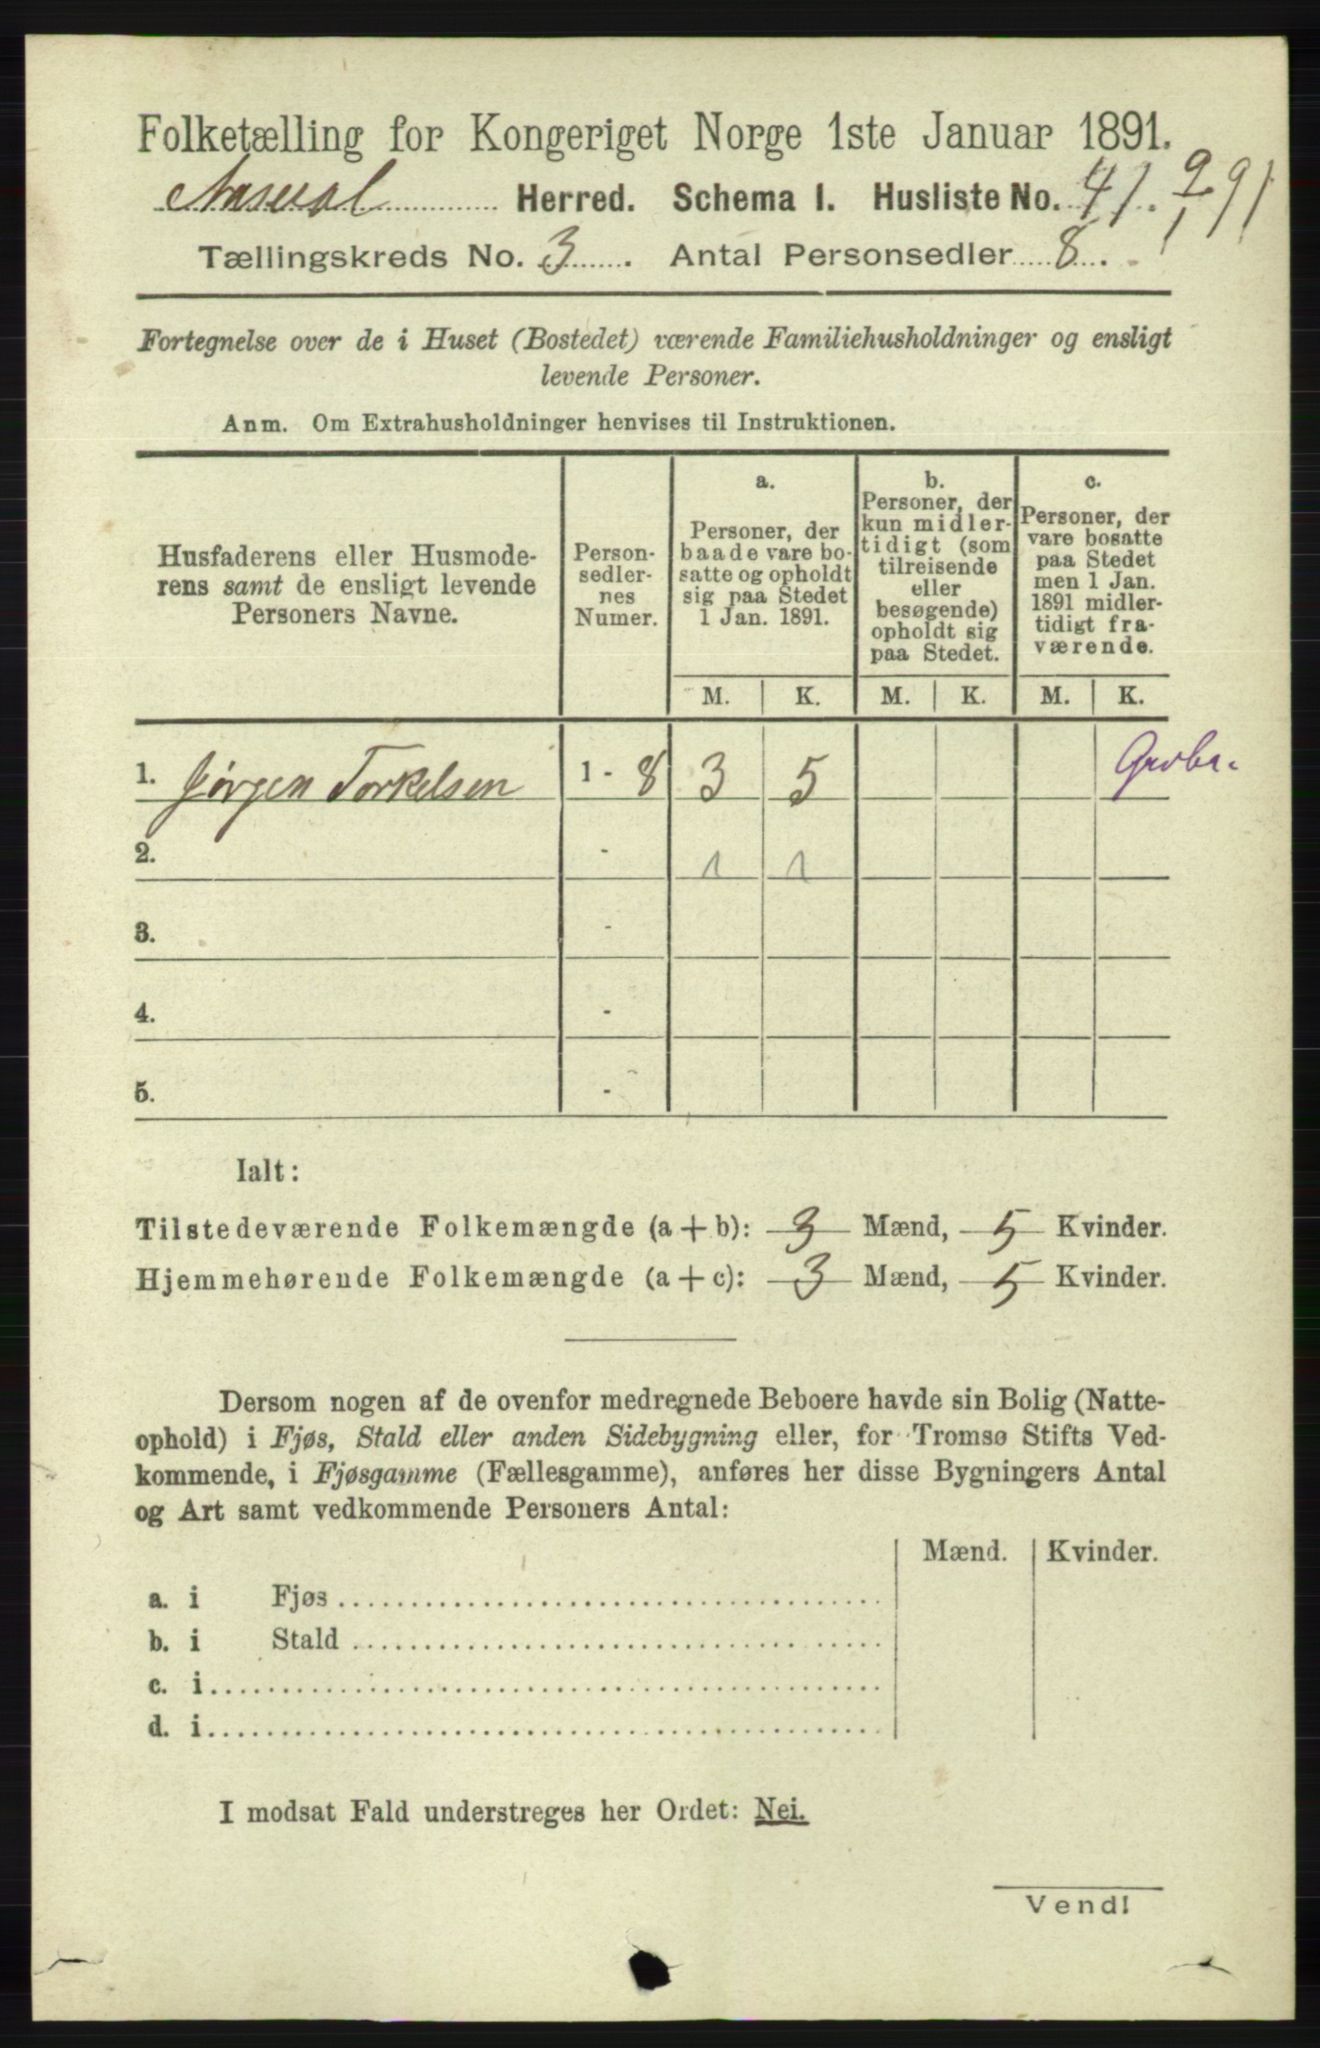 Folketælling for Kongeriget Norge 1ste Januar 1891.
Aaseral Herred. Schema I. Husliste No. 41.
Tællingskreds No. 3. Antal Personsedler 8.
Fortegnelse over de i Huset (Bostedet) værende Familiehusholdninger og ensligt
levende Personer.
Anm. Om Extrahusholdninger henvises til Instruktionen.
Husfaderens eller Husmode-
rens samt de ensligt levende
Personers Navne.
Person-
sedler-
nes
Numer.
a.
Personer, der
baade vare bo-
satte og opholdt
sig paa Stedet
1 Jan. 1891.
b.
Personer, der
kun midler-
tidigt (som
tilreisende
eller
besøgende)
opholdt sig
paa Stedet.
c.
Personer, der
vare bosatte
paa Stedet
men 1 Jan.
1891 midler-
tidigt fra-
værende.
M. K. M. K. M. K.
1. Jørgen Torkelsen 1 - 8 3 5
2. - 1 1
3. -
4. -
5. -
Ialt:
Tilstedeværende Folkemængde (a + b): 3 Mænd, 5 Kvinder.
Hjemmehørende Folkemængde (a + c): 3 Mænd, 5 Kvinder.
Dersom nogen af de ovenfor medregnede Beboere havde sin Bolig (Natte-
ophold) i Fjøs, Stald eller anden Sidebygning eller, for Tromsø Stifts Ved-
kommende, i Fjøsgamme (Fællesgamme), anføres her disse Bygningers Antal
og Art samt vedkommende Personers Antal:
Mænd. Kvinder.
a. i Fjøs
b. i Stald
c. i
d. i
I modsat Fald understreges her Ordet: Nei.
Vend!